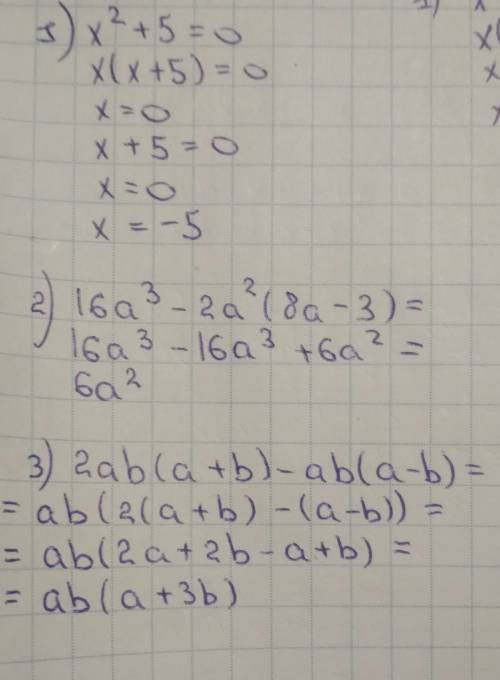 1) x² + 5 = 0
x(x+5) = 0
x = 0
x + 5 = 0
x = 0
x = -5
2) 16a³ - 2a²(8a - 3) =
16a³ - 16a³ + 6a² =
6a²
3) 2ab(a+b) - ab(a-b) =
= ab(2(a+b) - (a-b)) =
= ab(2a+2b-a+b) =
= ab(a+3b)